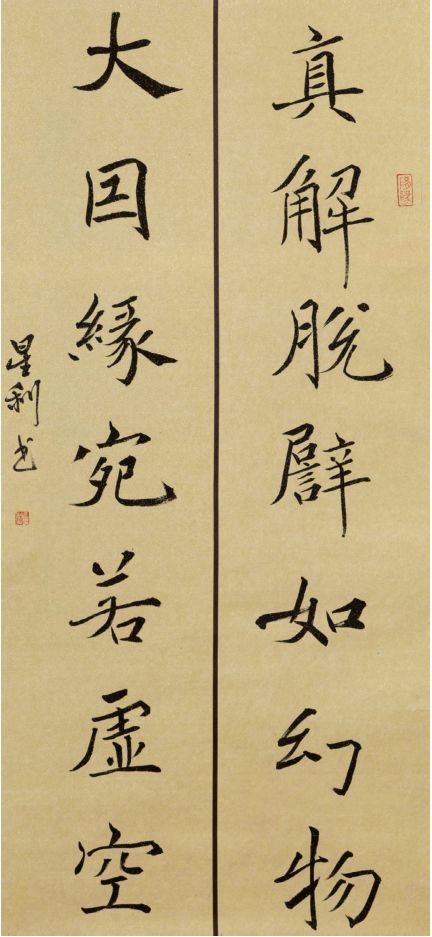 真解脱譬如幻物
大因緣宛若虚空
星利书